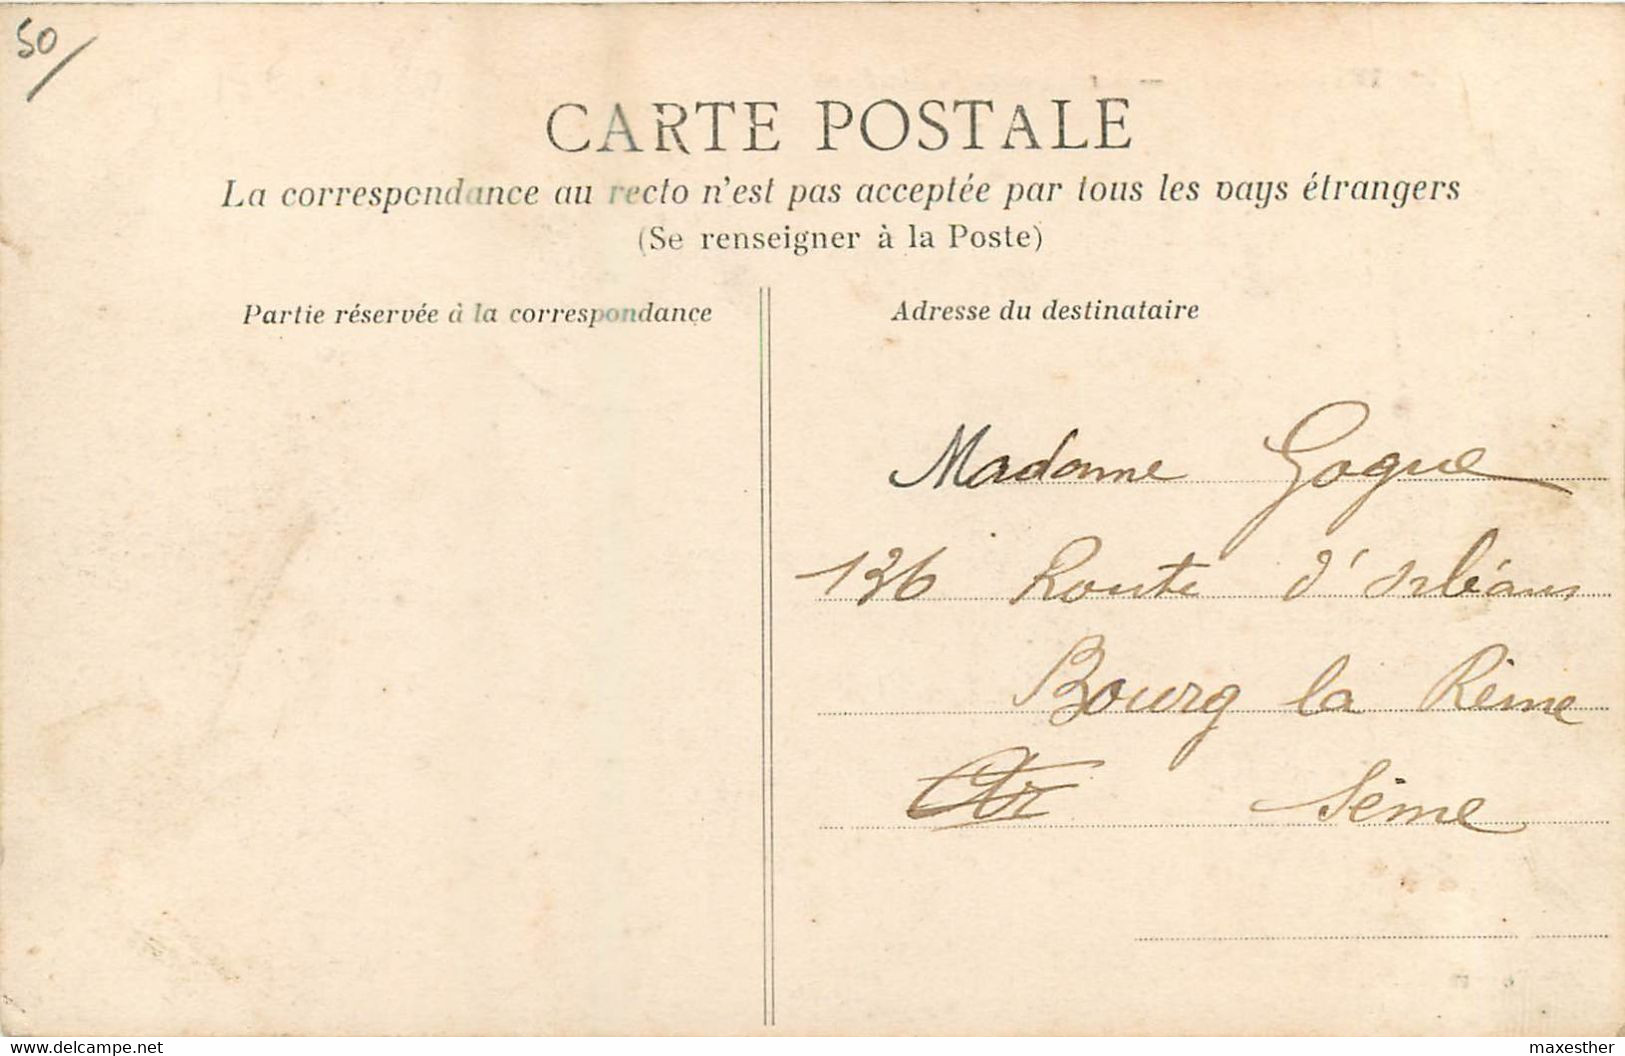 50/
CARTE POSTALE
La correspondance au recto n'est pas acceptée par tous les pays étrangers
(Se renseigner à la Poste)
Partie réservée à la correspondance
Adresse du destinataire
Madame Gogue
136 Route d'Orléans
Bourg la Reine
Seine
www.delcampe.net
maxesther